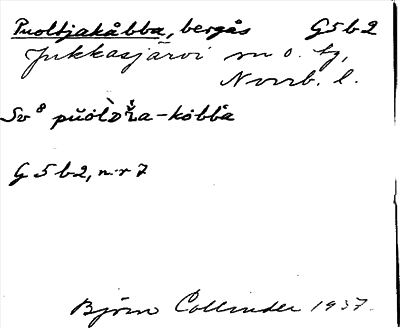 Puoltjakåbba, bergås G5b2
Jukkasjärvi sn o. tg,
Norrb. l.
Sv 8 -kobbå
G 5 b2, nr 7
Björn Collinder 1937.